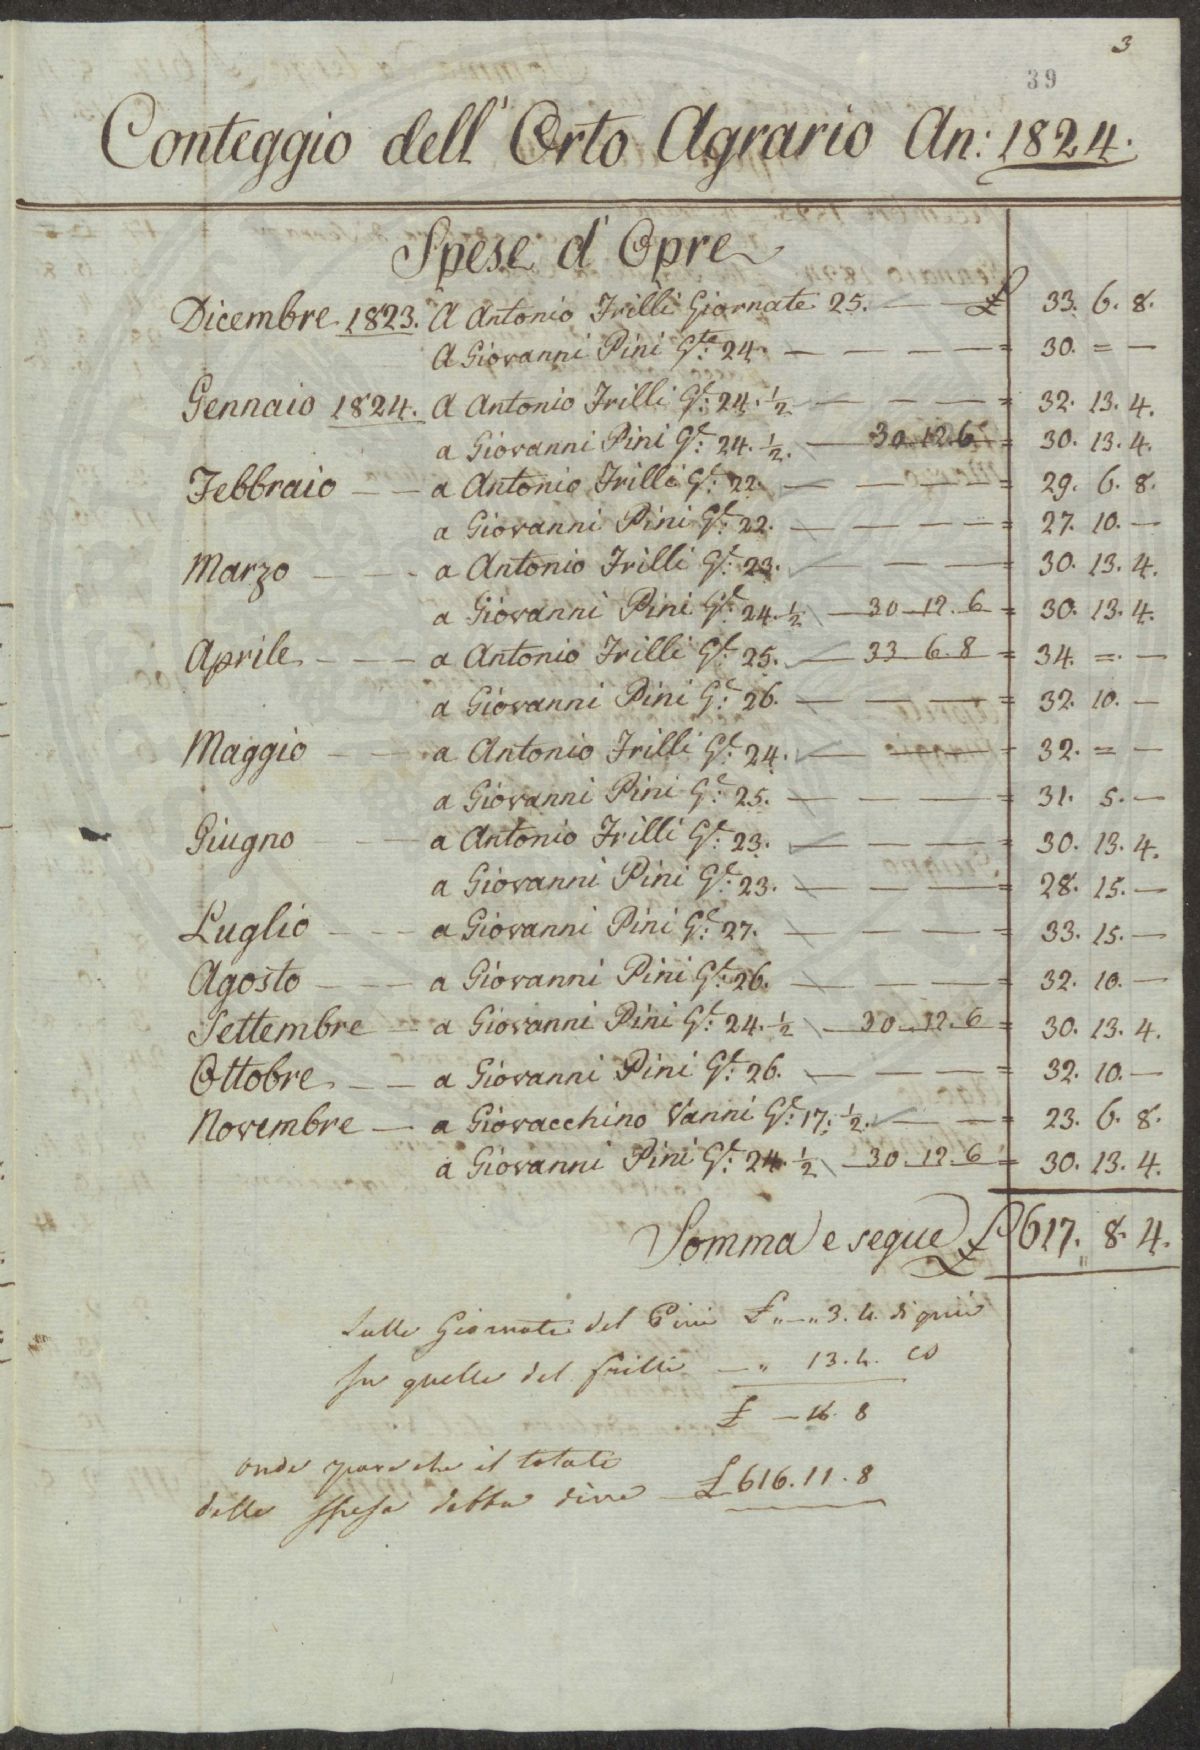 3
39
Conteggio dell' Orto Agrario An: 1824.
Spese d' Opre
Dicembre 1823. A Antonio Frilli Giornate 25. — — £ 33. 6. 8.
A Giovanni Pini G.te 24. — — — — = 30. = —
Gennaio 1824. A Antonio Frilli G.e: 24. ½ — — — — = 32. 13. 4.
a Giovanni Pini G.e: 24. ½. — 30. 12. 6 = 30. 13. 4.
Febbraio — — a Antonio Frilli G.e: 22. — — — — = 29. 6. 8.
a Giovanni Pini G.e: 22. — — — — = 27. 10. —
Marzo — — — a Antonio Frilli G.e: 23. — — — — = 30. 13. 4.
a Giovanni Pini G.e: 24. ½ — 30. 12. 6 = 30. 13. 4.
Aprile — — — a Antonio Frilli G.e: 25. — 33 6. 8 = 34. =. —
a Giovanni Pini G.e: 26. — — — — = 32. 10. —
Maggio — — a Antonio Frilli G.e: 24. — — — = 32. = —
a Giovanni Pini G.e: 25. — — — — = 31. 5. —
Giugno — a Antonio Frilli G.e: 23. — — — — = 30. 13. 4.
a Giovanni Pini G.e: 23. — — — — = 28. 15. —
Luglio — — a Giovanni Pini G.e: 27. — — — — = 33. 15. —
Agosto — — a Giovanni Pini G.e: 26. — — — — = 32. 10. —
Settembre — a Giovanni Pini G.e: 24. ½ — 30. 12. 6 = 30. 13. 4.
Ottobre — — a Giovanni Pini G.e: 26. — — — — = 32. 10. —
Novembre — a Giovacchino Vanni G.e: 17. ½. — — — = 23. 6. 8.
a Giovanni Pini G.e: 24. ½ — 30. 12. 6 = 30. 13. 4.
Somma e segue £ 617. 8. 4.
Sulle Giornate del Pini £ „ — „ 3. 4. di più
Su quelle del Frilli — „ 13. 4. co
£ — 16. 8
onde pare che il totale
delle spese debba dire — £ 616. 11. 8